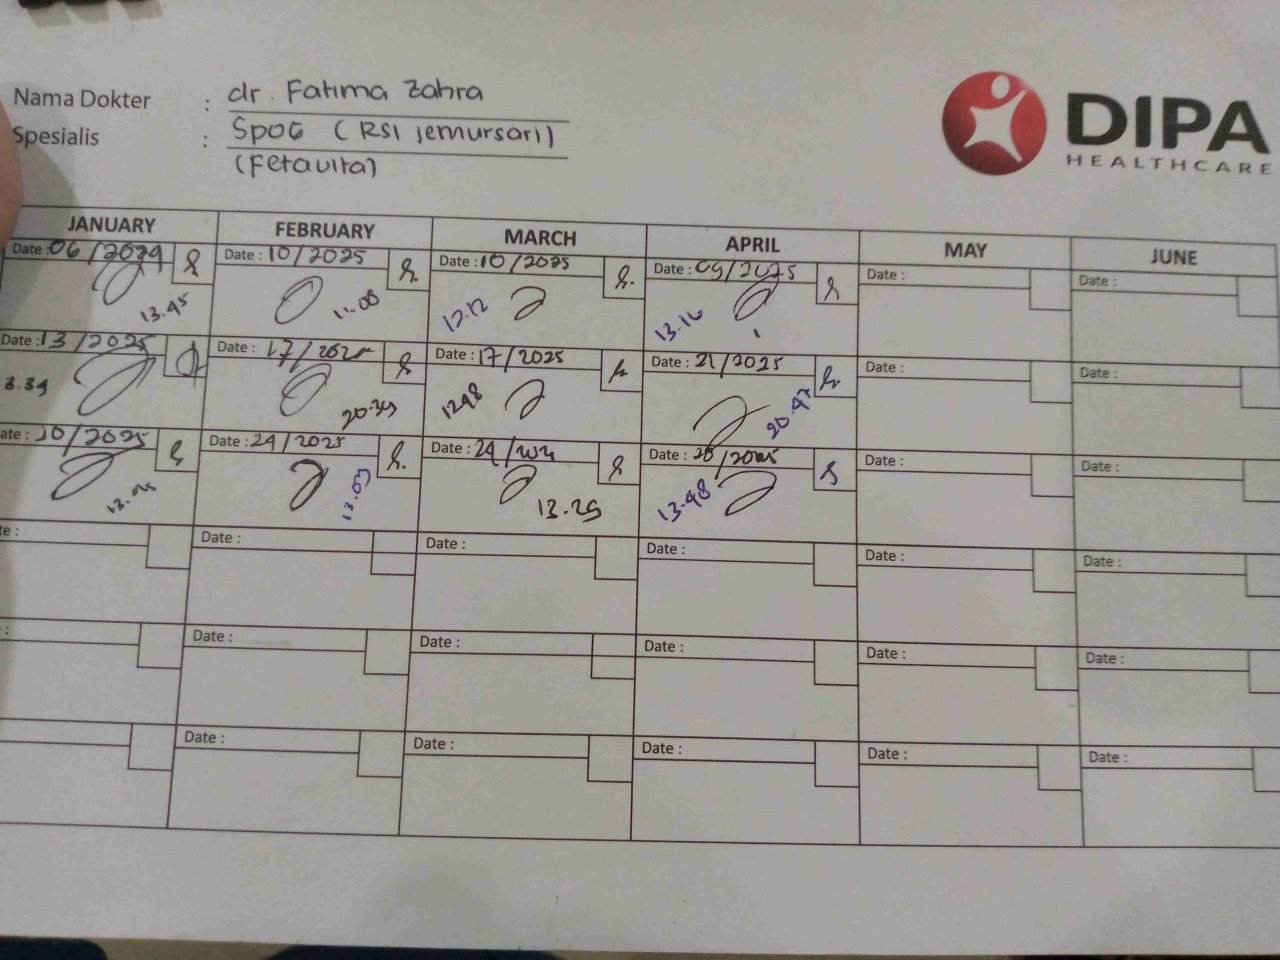 Nama Dokter : dr. Fatima Zahra
Spesialis : SpOG (RSI Jemursari)
(Fetavita)
DIPA
HEALTHCARE
JANUARY FEBRUARY MARCH APRIL MAY JUNE
Date : 06/2029 Date : 10/2025 Date : 10/2025 Date : 09/2025 Date : Date :
13.45 11.08 12.12 13.16
Date : 13/2025 Date : 17/2025 Date : 17/2025 Date : 21/2025 Date : Date :
3.39 20.39 1248 20.47
ate : 30/2025 Date : 24/2025 Date : 24/202 Date : 28/2025 Date : Date :
13.03 13.29 13.48
te : Date : Date : Date : Date : Date :
: Date : Date : Date : Date : Date :
Date : Date : Date : Date : Date :